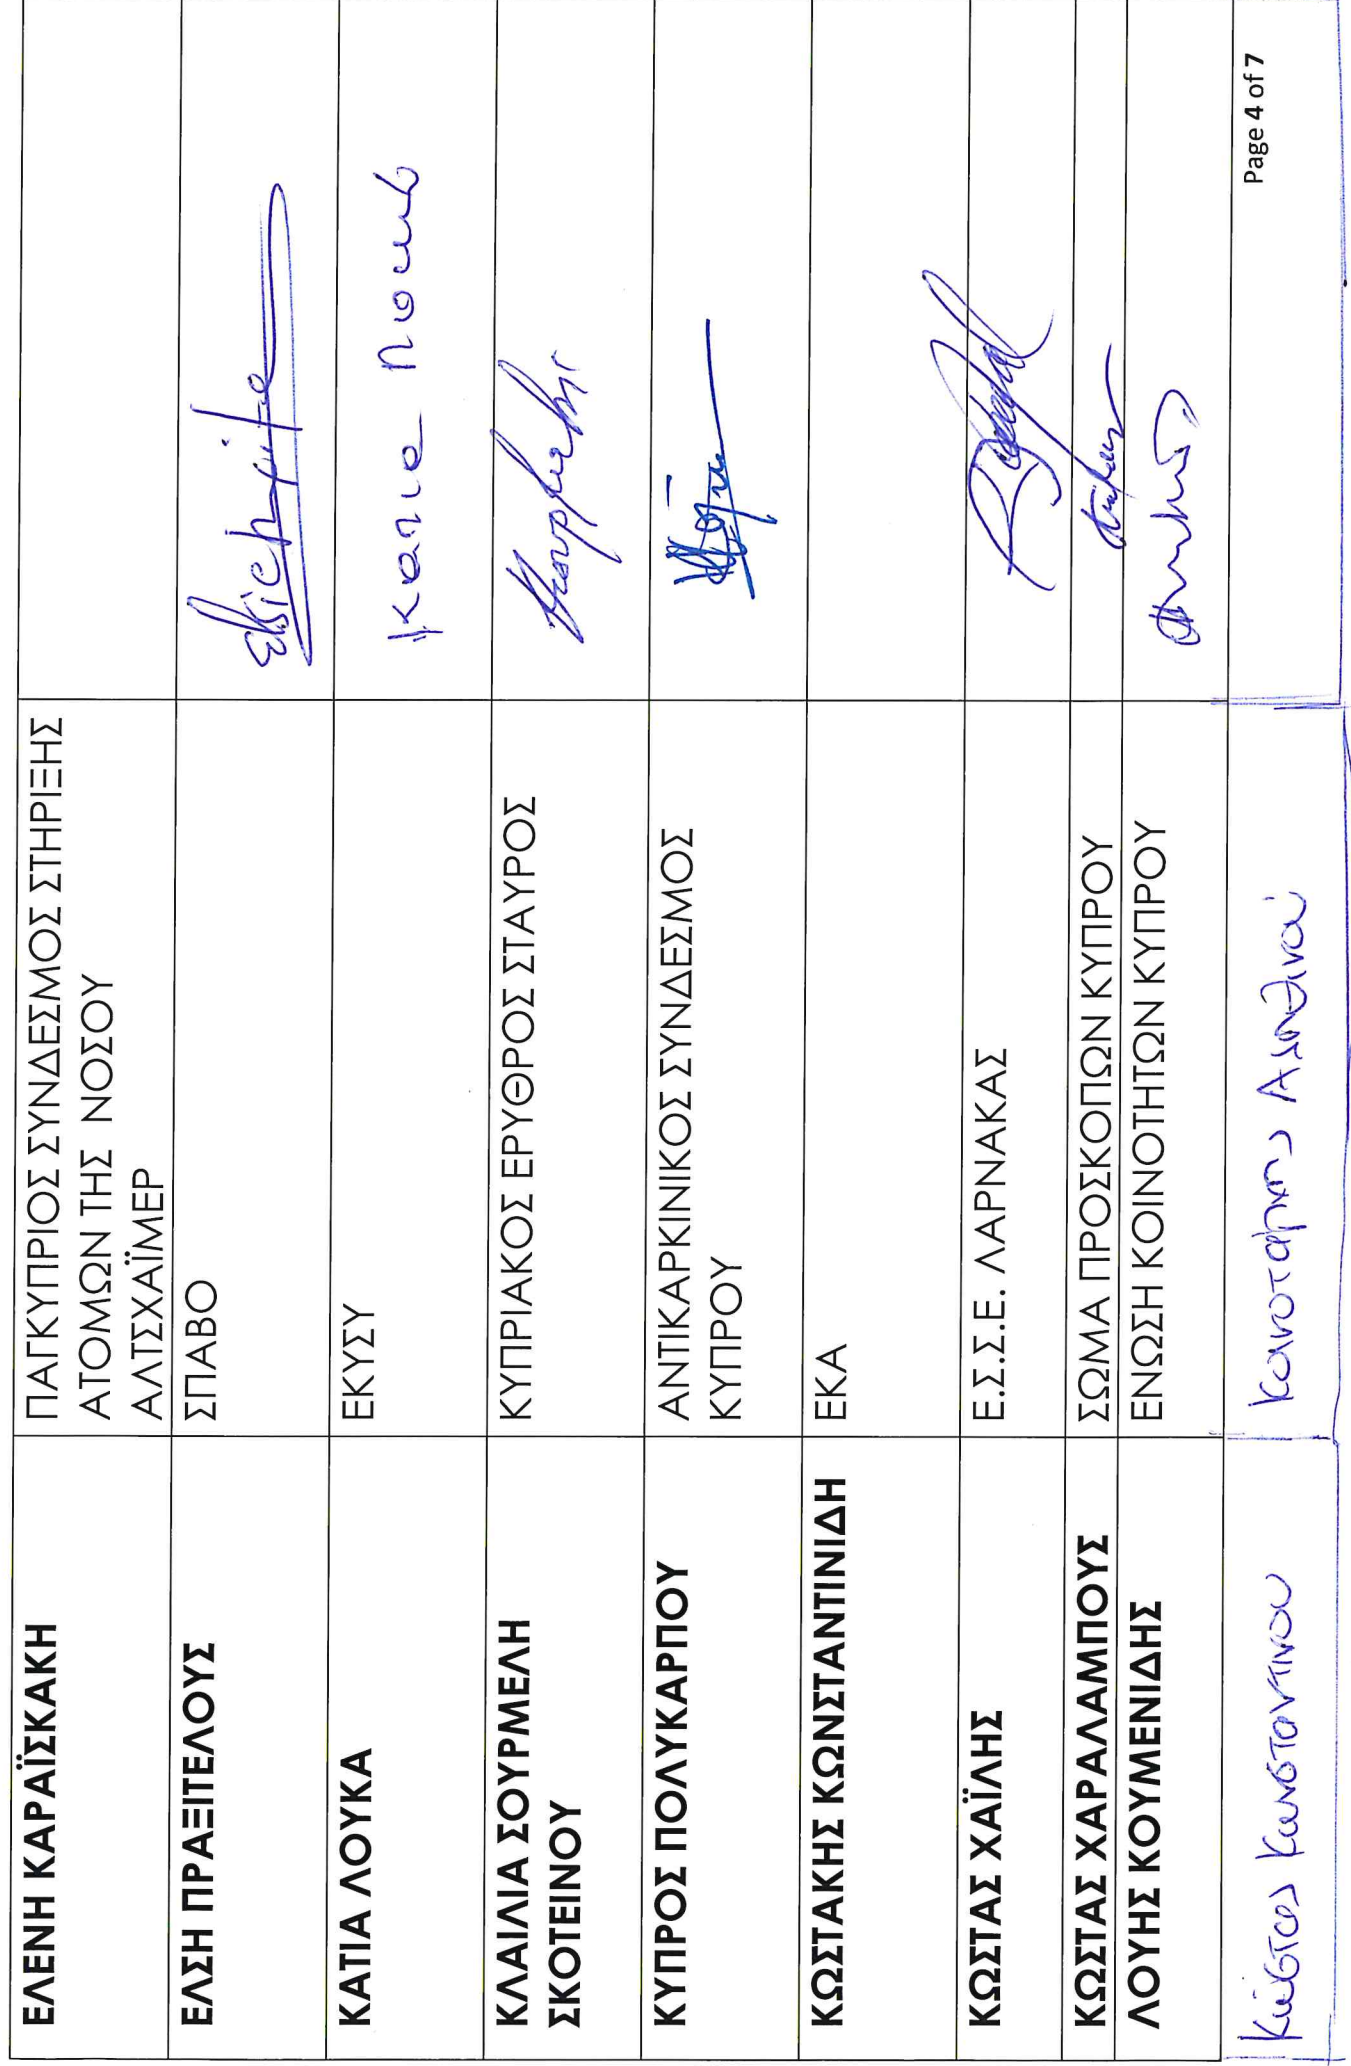 ΕΛΕΝΗ ΚΑΡΑΪΣΚΑΚΗ
ΠΑΓΚΥΠΡΙΟΣ ΣΥΝΔΕΣΜΟΣ ΣΤΗΡΙΞΗΣ
ΑΤΟΜΩΝ ΤΗΣ ΝΟΣΟΥ
ΑΛΤΣΧΑΪΜΕΡ
ΕΛΣΗ ΠΡΑΞΙΤΕΛΟΥΣ
ΣΠΑΒΟ
ΚΑΤΙΑ ΛΟΥΚΑ
ΕΚΥΣΥ
ΚΛΑΙΛΙΑ ΣΟΥΡΜΕΛΗ
ΣΚΟΤΕΙΝΟΥ
ΚΥΠΡΙΑΚΟΣ ΕΡΥΘΡΟΣ ΣΤΑΥΡΟΣ
ΚΥΠΡΟΣ ΠΟΛΥΚΑΡΠΟΥ
ΑΝΤΙΚΑΡΚΙΝΙΚΟΣ ΣΥΝΔΕΣΜΟΣ
ΚΥΠΡΟΥ
ΚΩΣΤΑΚΗΣ ΚΩΝΣΤΑΝΤΙΝΙΔΗ
ΕΚΑ
ΚΩΣΤΑΣ ΧΑΪΛΗΣ
Ε.Σ.Σ.Ε. ΛΑΡΝΑΚΑΣ
ΚΩΣΤΑΣ ΧΑΡΑΛΑΜΠΟΥΣ
ΣΩΜΑ ΠΡΟΣΚΟΠΩΝ ΚΥΠΡΟΥ
ΛΟΥΗΣ ΚΟΥΜΕΝΙΔΗΣ
ΕΝΩΣΗ ΚΟΙΝΟΤΗΤΩΝ ΚΥΠΡΟΥ
Κώστας Κωνσταντίνου
Κοινοτάρχης
Page 4 of 7